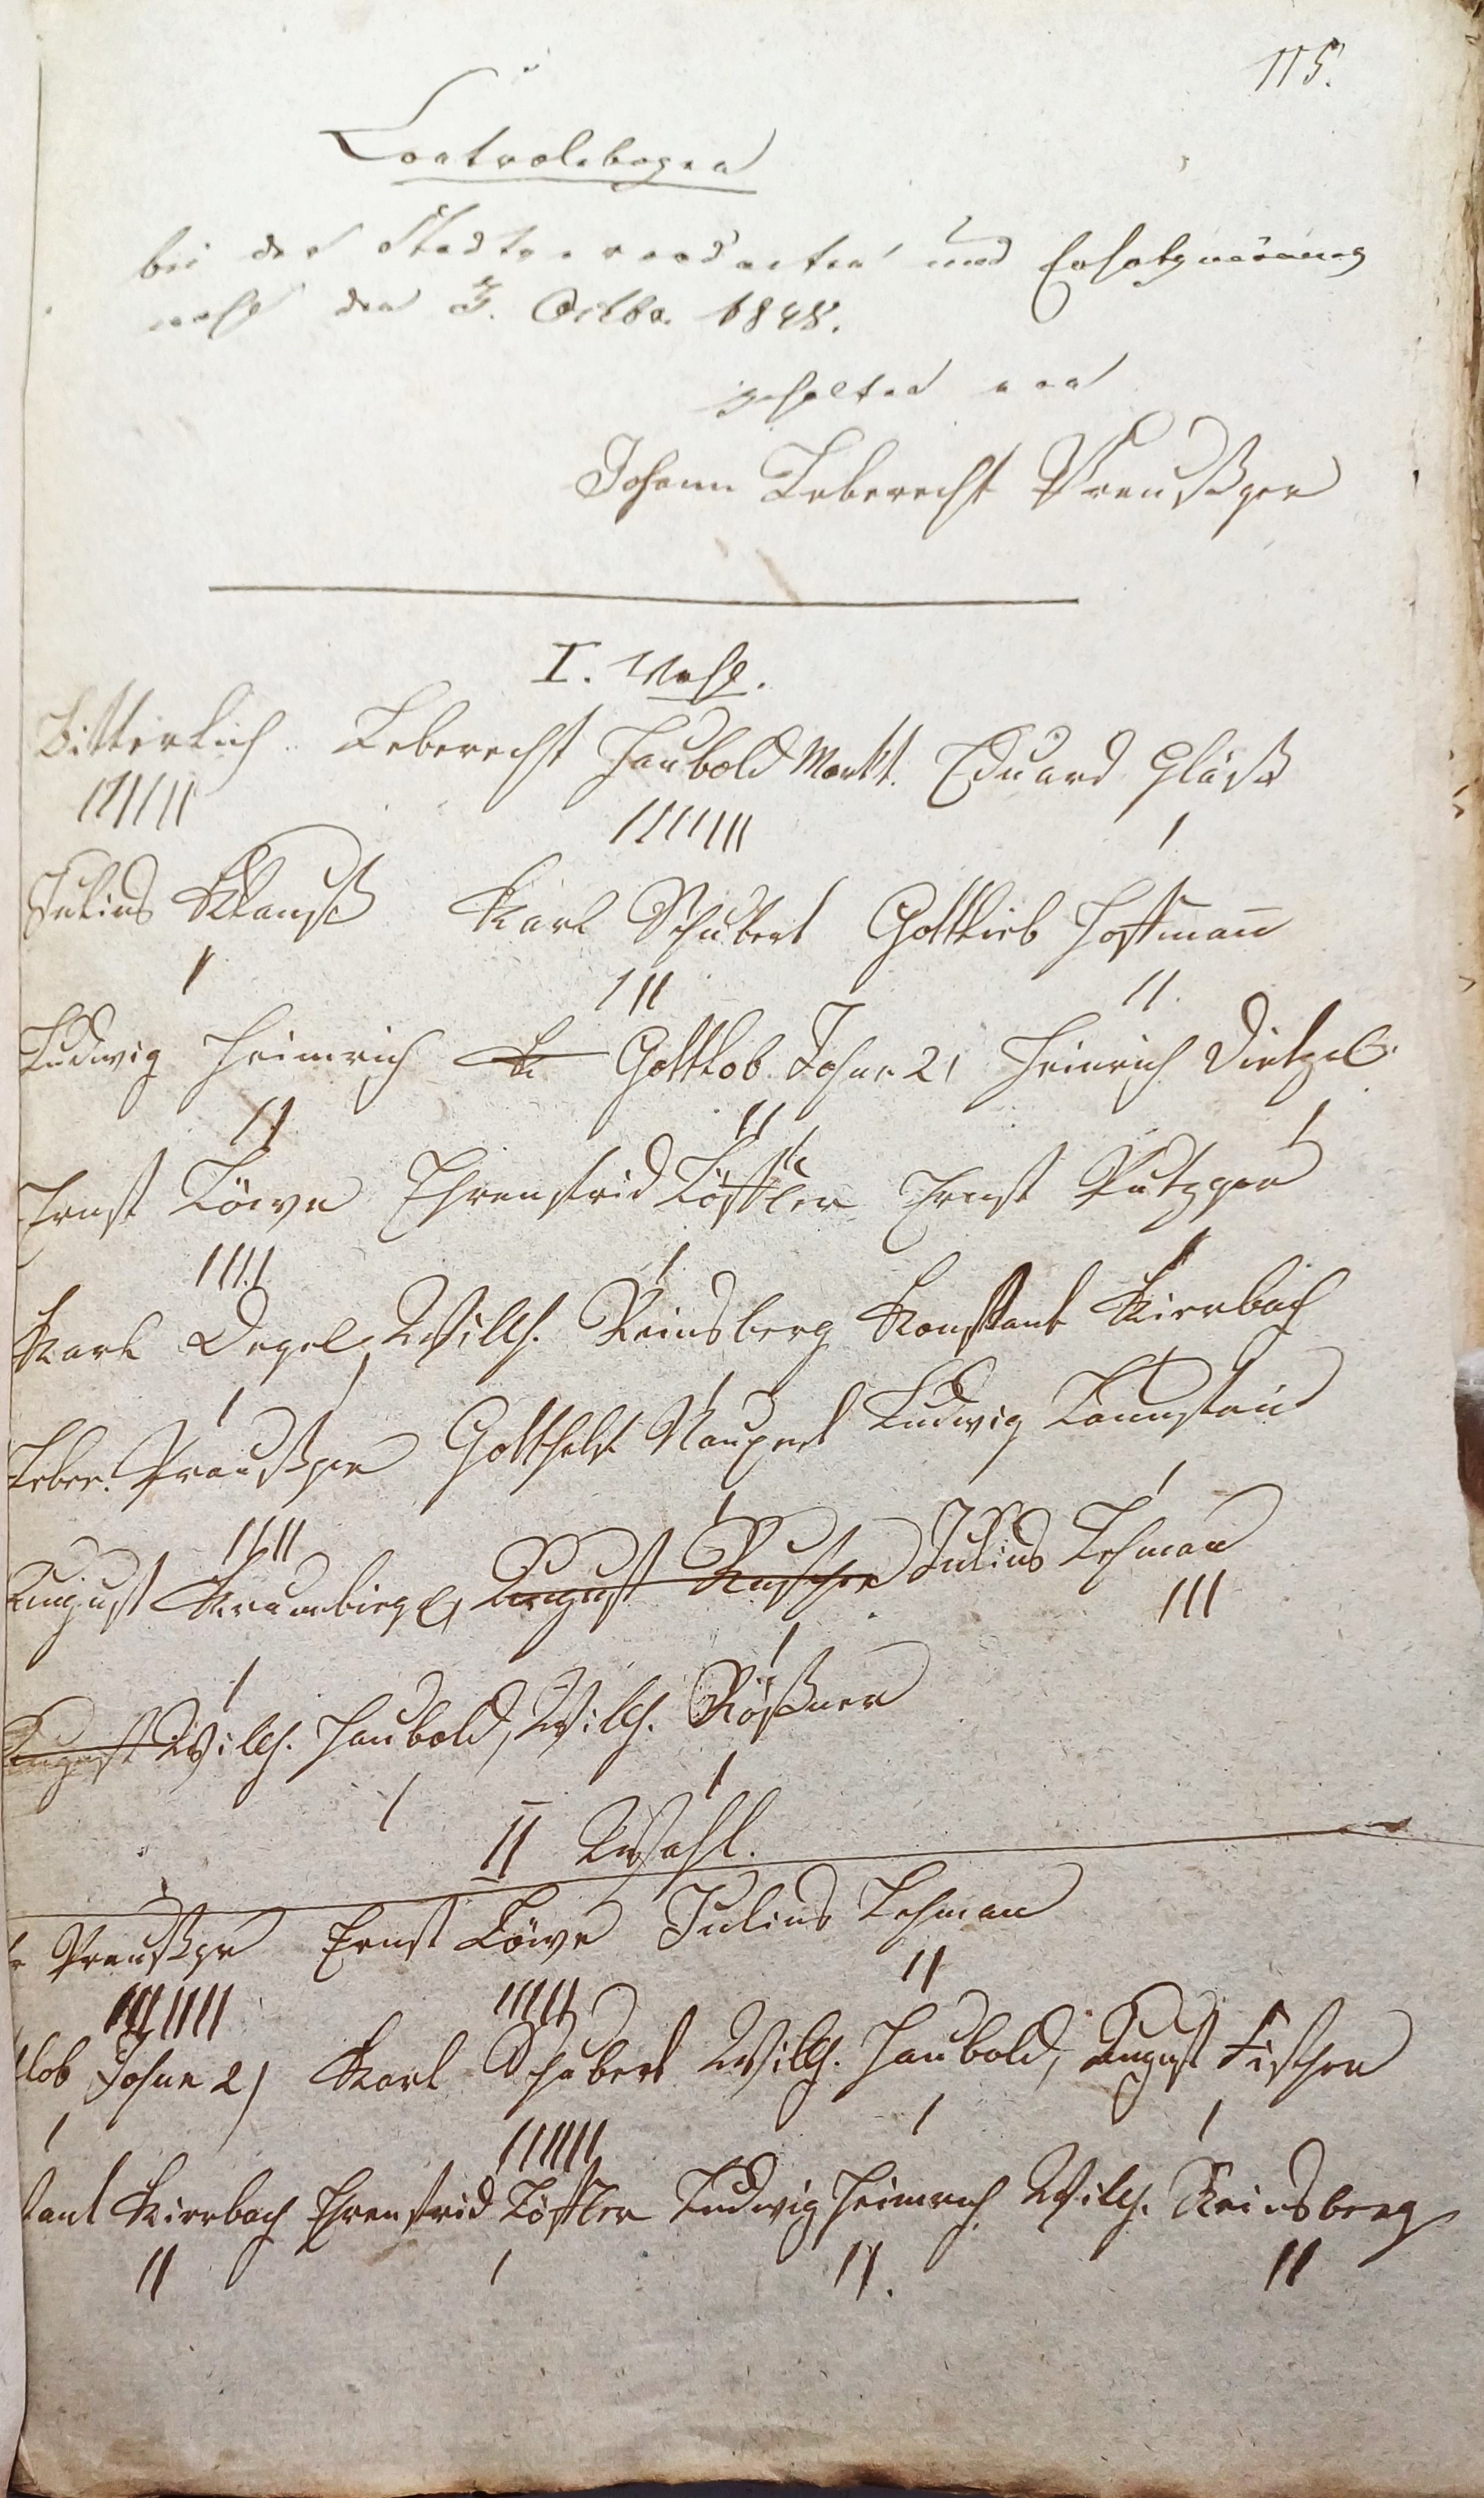 115.
Controlebogen
bei der Stadtverordneten und Ersatzmänner
wahl den 3. Octbr. 1848.
gehalten von
Johann Leberecht Preußger
I. Wahl.
Bitterlich Leberecht Haubold Markt. Eduard Gläß
IIIIII IIIIIII I
Julius Klauß Karl Schubert Gottlieb Hoffman̅
I III II.
Ludwig Heimrich Gottlob Johne 2) Heinrich Dietzel
II II I
Ernst Löwe Ehrenfrid Löffler Ernst Putzger
IIII I I
Karl Degel, Wilh. Reinsberg Konstant Kirrbach
I I
Leber. Preußger Gotthelf Naupert Ludwig Tannstein
IIII I I
August Krumbiegel, August Fischer Julius Lehman̅
I I III
August Wilh. Haubold, Wilh. Rößner
I I
II Wahl.
Preußger Ernst Löwe Julius Lehman
IIIIIII IIIII II
lob Johne 2) Karl Schubert Wilh. Haubold, August Fischer
I IIIIII I I
tant Kirrbach Ehrenfrid Löffler Ludwig Heimrich Wilh. Reinsberg
II I II. II